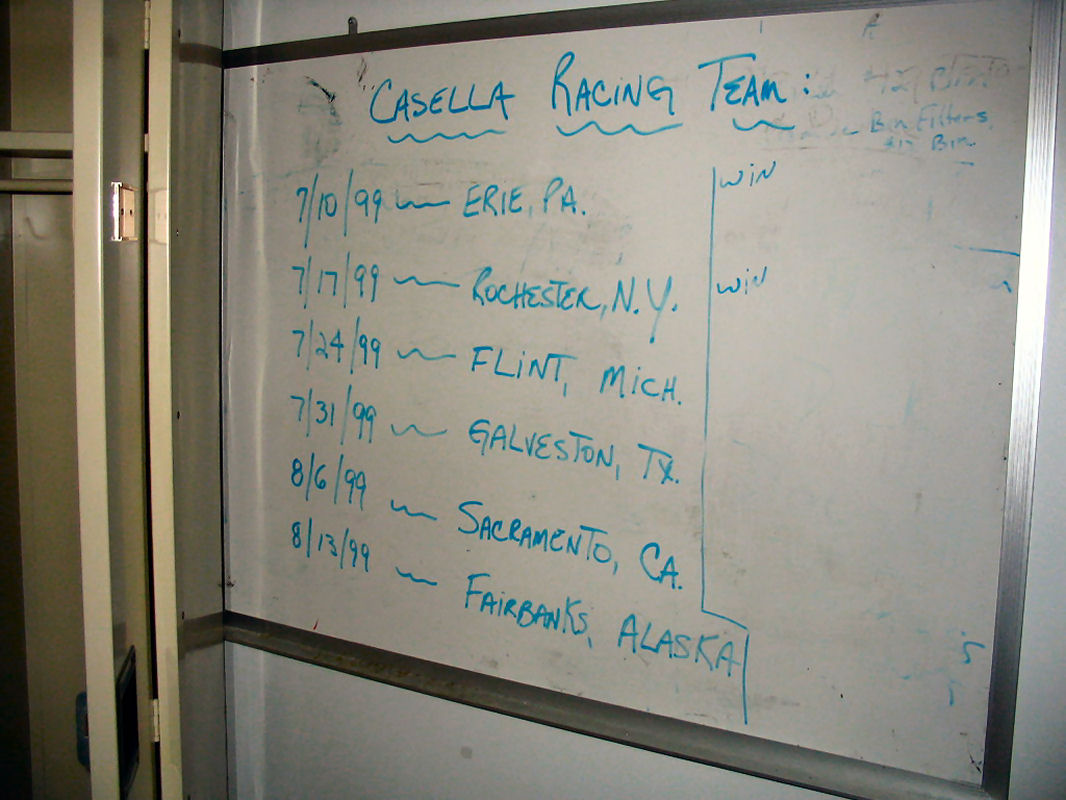 CASELLA RACING TEAM:
Bin Filters
Bin
7/10/99 ERIE, PA. WiN
7/17/99 ROCHESTER, N.Y. WiN
7/24/99 FLiNT, MiCH.
7/31/99 GALVESTON, TX.
8/6/99 SACRAMENTO, CA.
8/13/99 FAiRBANKS, ALASKA